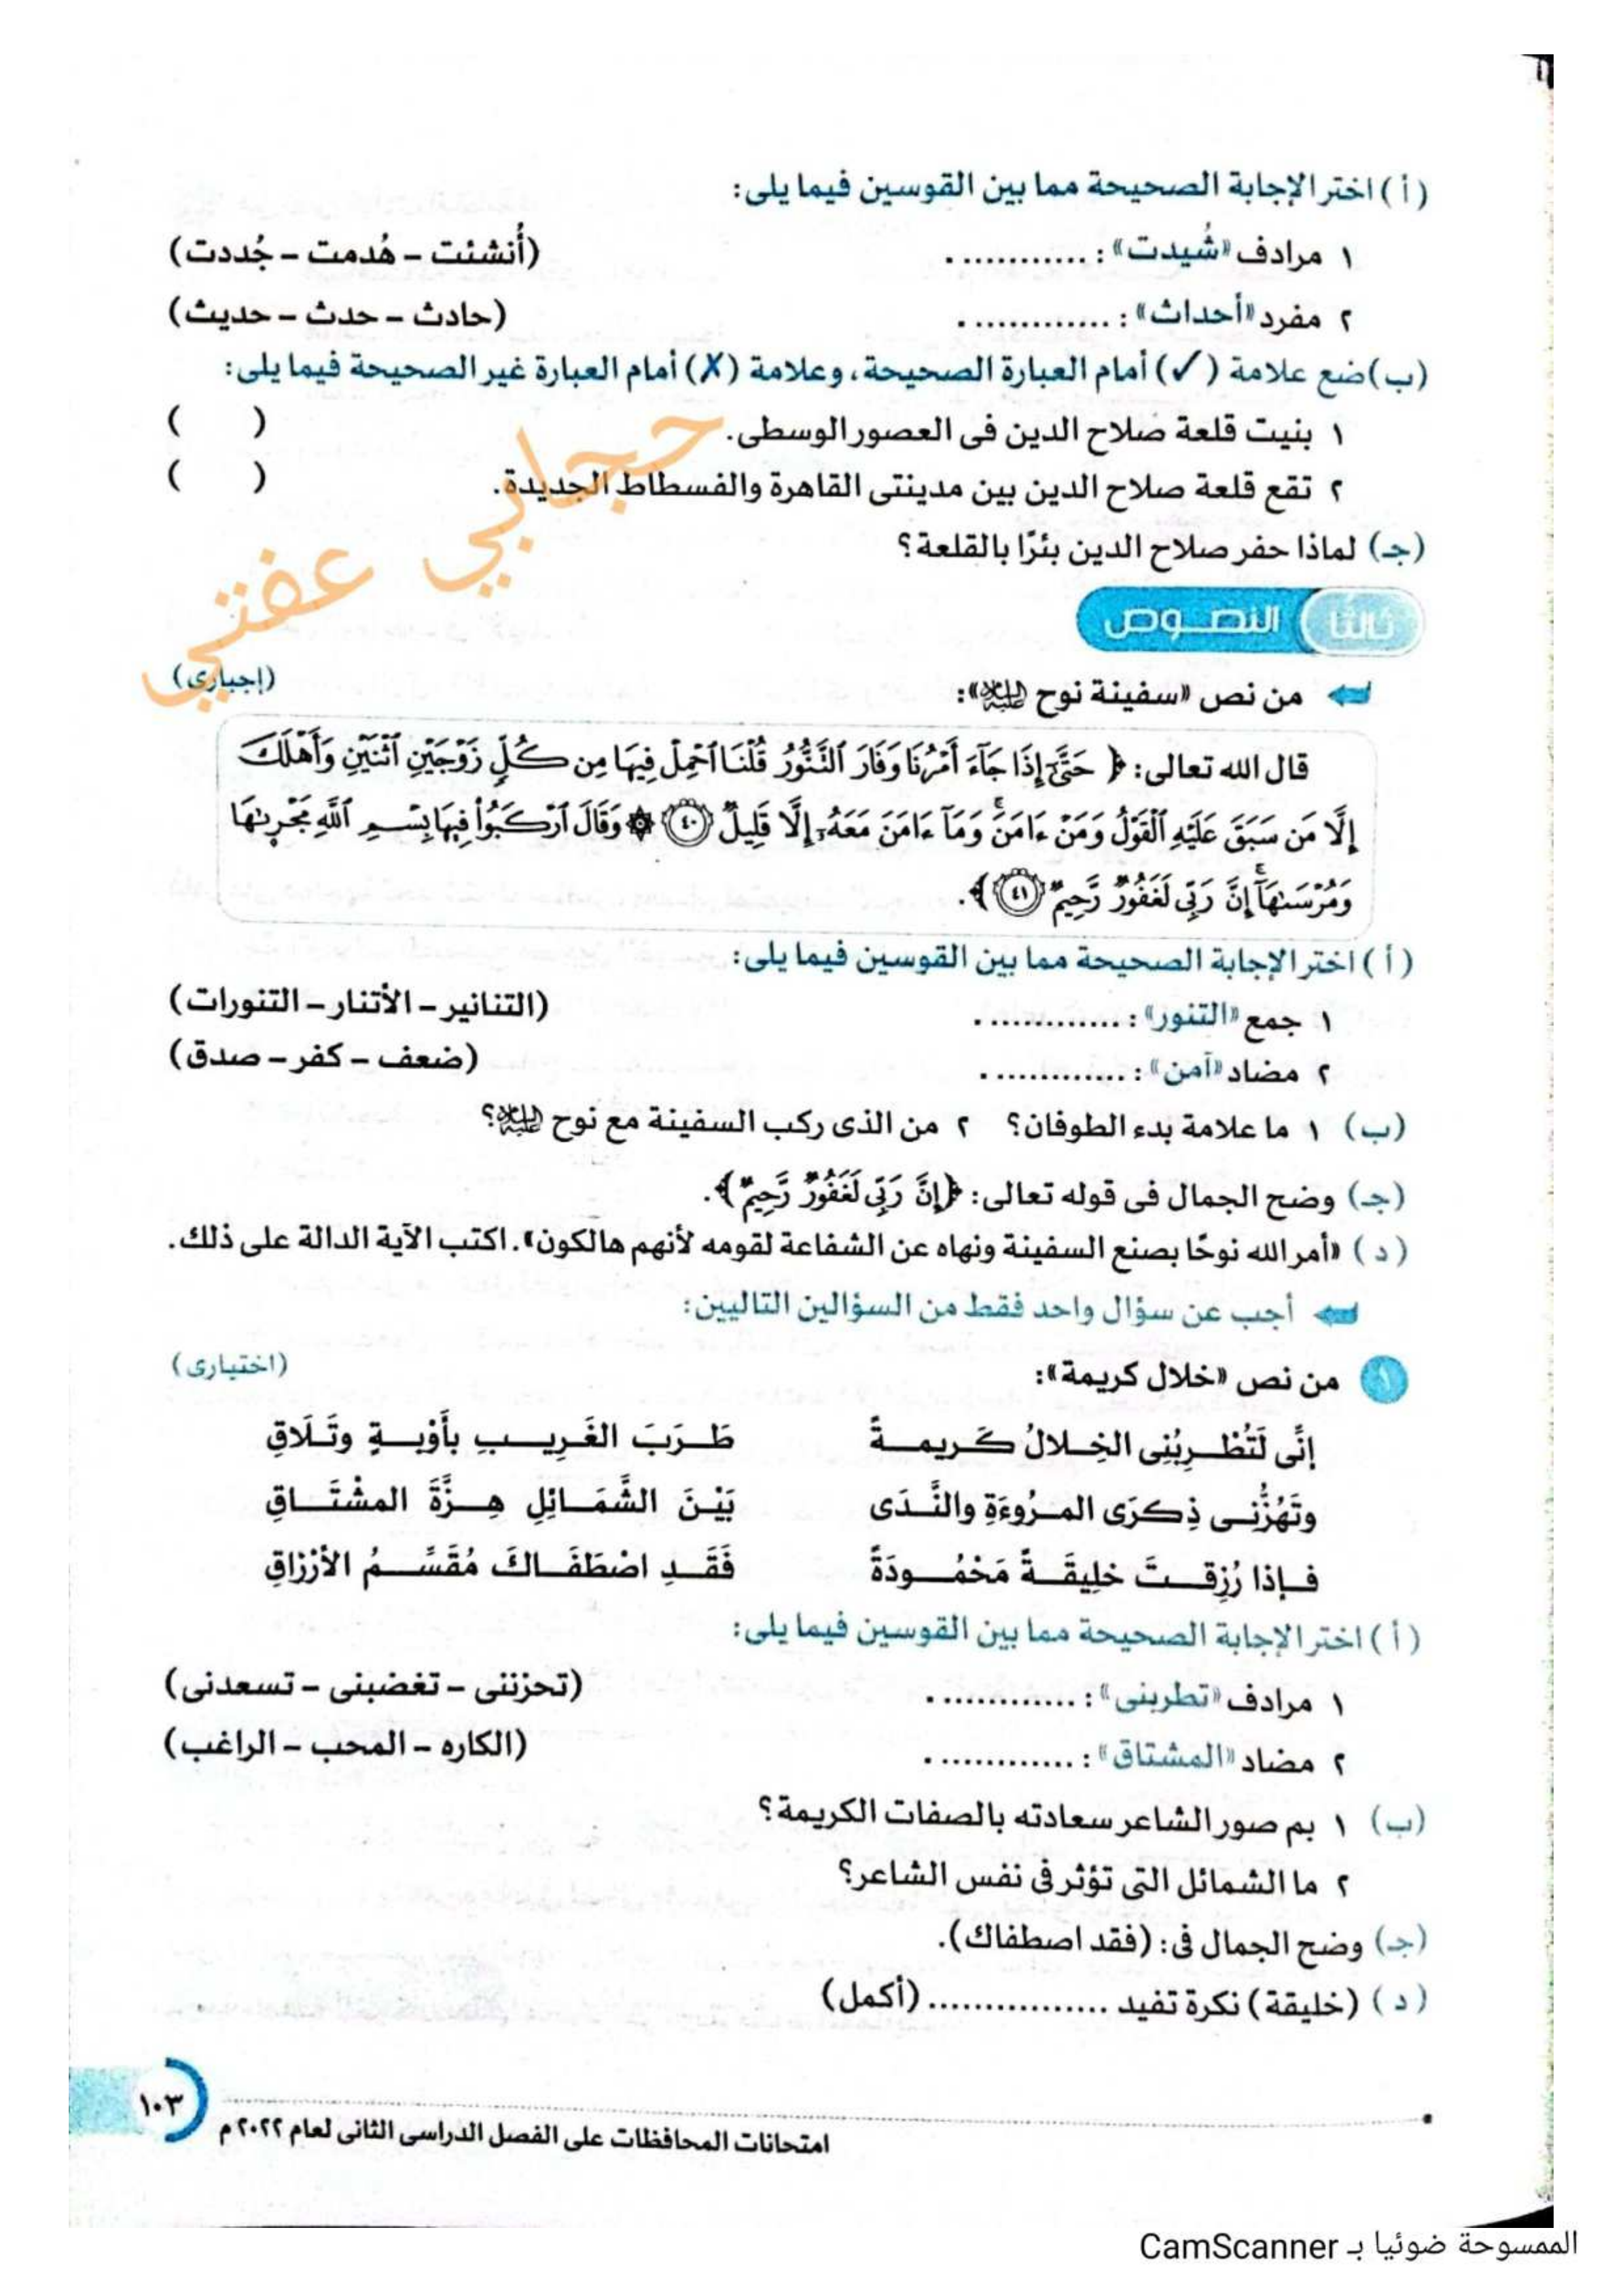 (أ) اختر الإجابة الصحيحة مما بين القوسين فيما يلى:
١ مرادف «شُيدت»: ............. (أُنشئت - هُدمت - جُددت)
٢ مفرد «أحداث»: ............. (حادث - حدث - حديث)
(ب) ضع علامة (✓) أمام العبارة الصحيحة، وعلامة (✗) أمام العبارة غير الصحيحة فيما يلى:
١ بنيت قلعة صلاح الدين فى العصور الوسطى. ( )
٢ تقع قلعة صلاح الدين بين مدينتى القاهرة والفسطاط الجديدة. ( )
(جـ) لماذا حفر صلاح الدين بئرًا بالقلعة؟
حجابي عفتي
ثالثًا النصوص
من نص «سفينة نوح عليه السلام»: (إجبارى)
قال الله تعالى: ﴿ حَتَّىٰٓ إِذَا جَآءَ أَمْرُنَا وَفَارَ ٱلتَّنُّورُ قُلْنَا ٱحْمِلْ فِيهَا مِن كُلٍّ زَوْجَيْنِ ٱثْنَيْنِ وَأَهْلَكَ
إِلَّا مَن سَبَقَ عَلَيْهِ ٱلْقَوْلُ وَمَنْ ءَامَنَ ۚ وَمَآ ءَامَنَ مَعَهُۥٓ إِلَّا قَلِيلٌ ﴿٤٠﴾ ۞ وَقَالَ ٱرْكَبُوا۟ فِيهَا بِسْمِ ٱللَّهِ مَجْر۪ىٰهَا
وَمُرْسَىٰهَآ ۚ إِنَّ رَبِّى لَغَفُورٌ رَّحِيمٌ ﴿٤١﴾ ﴾.
(أ) اختر الإجابة الصحيحة مما بين القوسين فيما يلى:
١ جمع «التنور»: ............. (التنانير - الأتنار - التنورات)
٢ مضاد «آمن»: ............. (ضعف - كفر - صدق)
(ب) ١ ما علامة بدء الطوفان؟ ٢ من الذى ركب السفينة مع نوح عليه السلام؟
(جـ) وضح الجمال فى قوله تعالى: ﴿إِنَّ رَبِّى لَغَفُورٌ رَّحِيمٌ﴾.
(د) «أمر الله نوحًا بصنع السفينة ونهاه عن الشفاعة لقومه لأنهم هالكون». اكتب الآية الدالة على ذلك.
أجب عن سؤال واحد فقط من السؤالين التاليين:
١ من نص «خلال كريمة»: (اختيارى)
إنِّى لَتُطْـرِبُنِى الخِـلالُ كَـريمـةً طَـرَبَ الغَرِيـبِ بأَوْبـةٍ وتَـلَاقِ
وتَهُزُّنـى ذِكرَى المـرُوءَةِ والنَّـدَى بَيْـنَ الشَّمَـائِلِ هِـزَّةَ المشْتَـاقِ
فـإذا رُزِقـتَ خلِيقَـةً مَحْمُـودَةً فَقَـدِ اصْطَفَـاكَ مُقَسِّـمُ الأرْزاقِ
(أ) اختر الإجابة الصحيحة مما بين القوسين فيما يلى:
١ مرادف «تطربنى»: ............. (تحزننى - تغضبنى - تسعدنى)
٢ مضاد «المشتاق»: ............. (الكاره - المحب - الراغب)
(ب) ١ بم صور الشاعر سعادته بالصفات الكريمة؟
٢ ما الشمائل التى تؤثر فى نفس الشاعر؟
(جـ) وضح الجمال فى: (فقد اصطفاك).
(د) (خليقة) نكرة تفيد ................ (أكمل)
١٠٣
امتحانات المحافظات على الفصل الدراسى الثانى لعام ٢٠٢٢م
الممسوحة ضوئيا بـ CamScanner